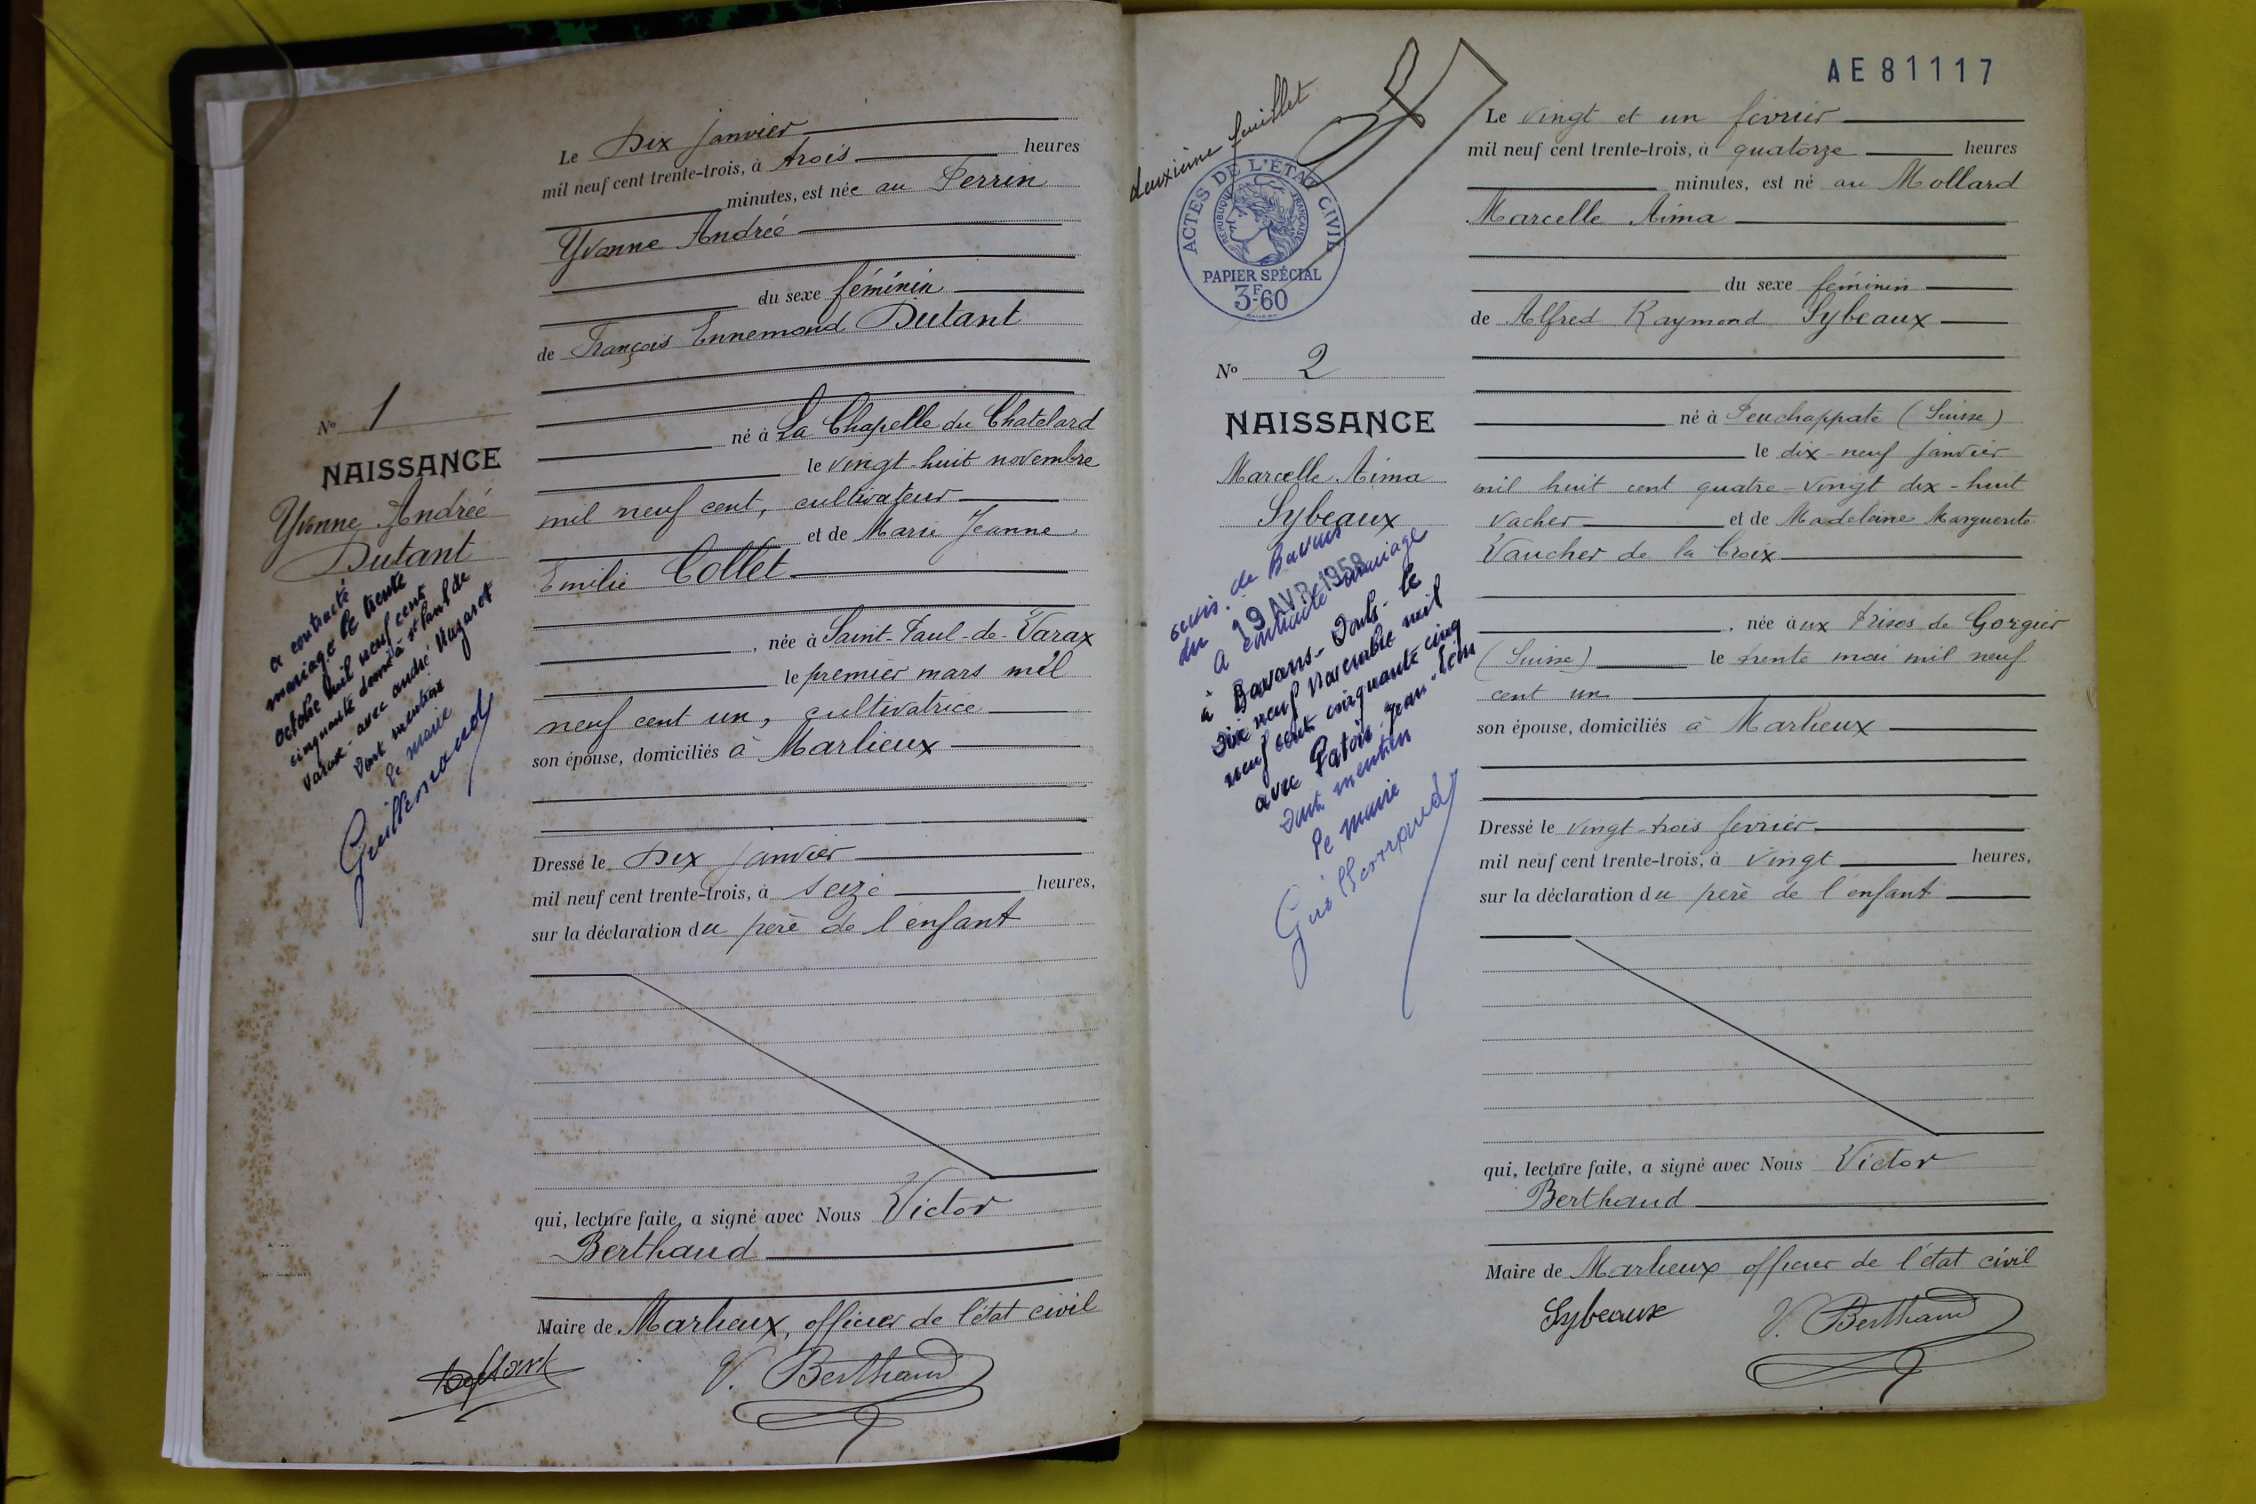 Le Dix janvier
mil neuf cent trente-trois, à trois heures
minutes, est née au Perrin
Yvonne Andrée
du sexe féminin
de François Ennemond Dutant
né à La Chapelle du Chatelard
le vingt-huit novembre
mil neuf cent, cultivateur
et de Marie Jeanne
Emilie Collet
, née à Saint-Paul-de-Varax
le premier mars mil
neuf cent un, cultivatrice
son épouse, domiciliés à Marlieux
Dressé le Dix janvier
mil neuf cent trente-trois, à seize heures,
sur la déclaration du père de l'enfant
qui, lecture faite, a signé avec Nous Victor
Berthaud
Maire de Marlieux, officier de l'état civil
V. Berthaud
No 1
NAISSANCE
Yvonne Andrée
Dutant
a contracté
mariage le trente
octobre mil neuf cent
cinquante à St Paul de
Varax avec andré
Dont mention
Le maire
Guillermaud
AE81117
deuxième feuillet
ACTES DE L'ÉTAT CIVIL
RÉPUBLIQUE FRANÇAISE
PAPIER SPÉCIAL
3F.60
No 2
NAISSANCE
Marcelle Aima
Sybeaux
avis. de Bavans
du 19 AVR 1958
a contracté mariage
à Bavans-Doubs-le
dix neuf novembre mil
neuf cent cinquante cinq
avec Patois Jean
Dont mention
Le maire
Guillermaud
Le vingt et un février
mil neuf cent trente-trois, à quatorze heures
minutes, est né au Mollard
Marcelle Aima
du sexe féminin
de Alfred Raymond Sybeaux
né à Peuchappate (Suisse)
le dix-neuf janvier
mil huit cent quatre-vingt dix-huit
vacher et de Madeleine Marguerite
Vaucher de la Croix
, née aux Prises de Gorgier
(Suisse) le trente mai mil neuf
cent un
son épouse, domiciliés à Marlieux
Dressé le vingt-trois février
mil neuf cent trente-trois, à vingt heures,
sur la déclaration du père de l'enfant
qui, lecture faite, a signé avec Nous Victor
Berthaud
Maire de Marlieux officier de l'état civil
Sybeaux V. Berthaud